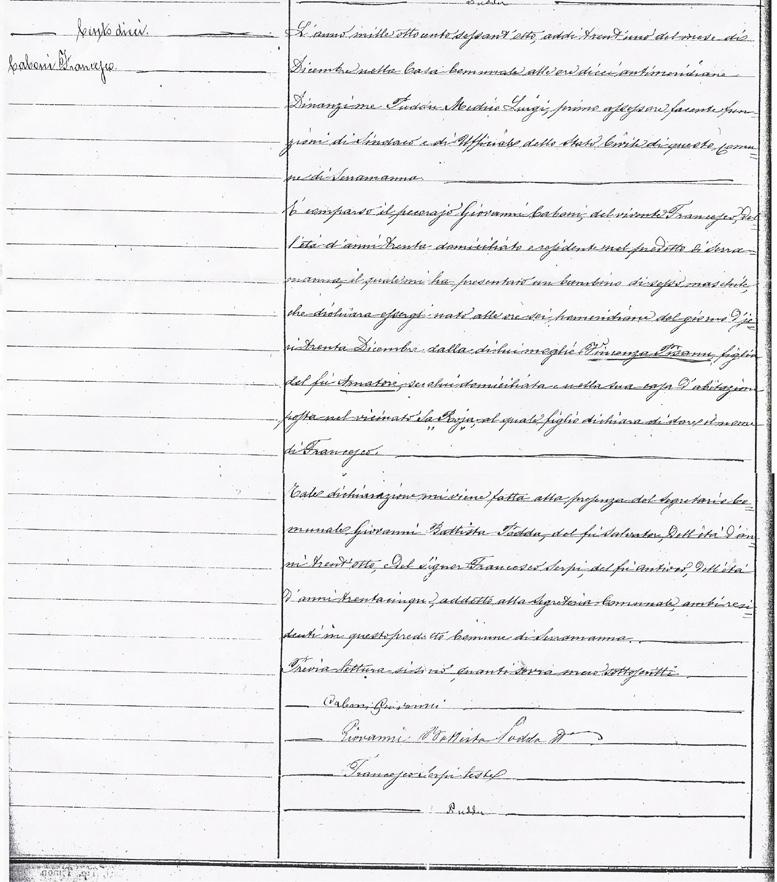 Cento dieci.
Caboni Francesco
L'anno mille ottocento sessant'otto, addì trent'uno del mese di
Dicembre nella Casa Comunale alle ore dieci antimeridiane
Dinanzi me Medico Luigi, primo assessore facente fun=
zioni di Sindaco e di Uffiziale dello Stato Civile di questo Comu=
ne di Serramanna
È comparso il pecorajo Giovanni Caboni, del vivente Francesco, del=
l'età d'anni trenta domiciliato e residente nel predetto di Serra=
manna, il quale mi ha presentato un bambino di sesso maschile,
che dichiara essergli nato alle ore sei pomeridiane del giorno d'je=
ri trenta Dicembre dalla di lui moglie Vincenza Pisanu, figlia
del fu Amatore, seco lui domiciliata e nella sua casa d'abitazione
posta nel vicinato Sa Roja, al quale figlio dichiara di dare il nome
di Francesco.
Tale dichiarazione mi viene fatta alla presenza del Segretario Co=
munale Giovanni Battista Podda, del fu Salvatore, dell'età d'an=
ni trent'otto, e del Signor Francesco Serpi, del fu Antioco, dell'età
d'anni trentacinque, addetto alla Segreteria Comunale, ambi resi=
denti in questo predetto Comune di Serramanna.
Previa lettura si sono quanti sovra meco sottoscritti
Caboni Giovanni
Giovanni Battista Podda
Francesco Serpi teste